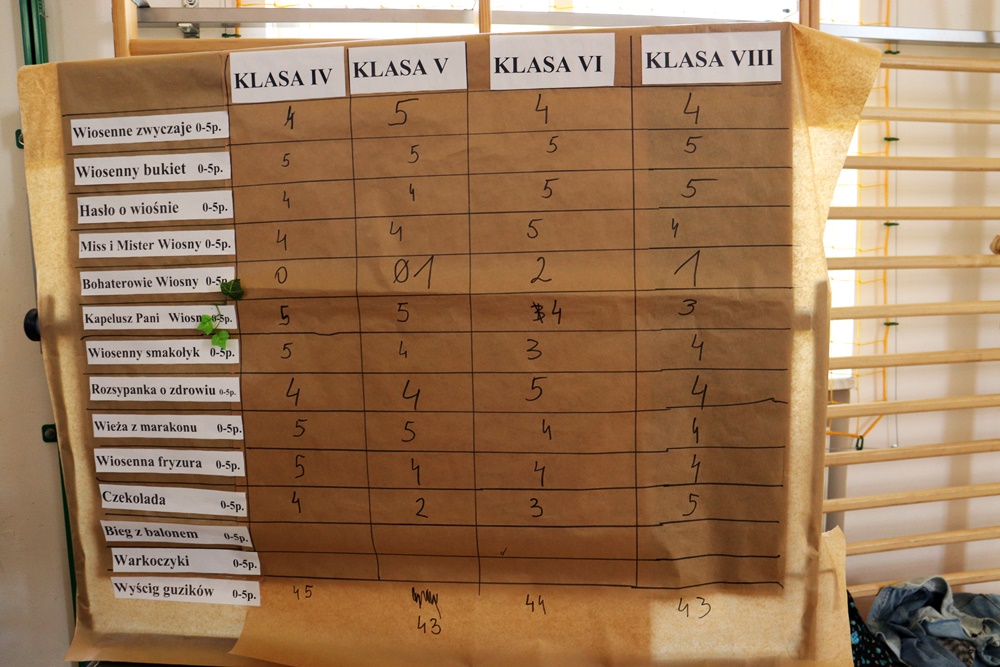 KLASA IV KLASA V KLASA VI KLASA VIII
Wiosenne zwyczaje 0-5p. 4 5 4 4
Wiosenny bukiet 0-5p. 5 5 5 5
Hasło o wiośnie 0-5p. 4 4 5 5
Miss i Mister Wiosny 0-5p. 4 4 5 4
Bohaterowie Wiosny 0-5p. 0 01 2 1
Kapelusz Pani Wiosny 0-5p. 5 5 4 3
Wiosenny smakołyk 0-5p. 5 4 3 4
Rozsypanka o zdrowiu 0-5p. 4 4 5 4
Wieża z marakonu 0-5p. 5 5 4 4
Wiosenna fryzura 0-5p. 5 4 4 4
Czekolada 0-5p. 4 2 3 5
Bieg z balonem 0-5p.
Warkoczyki 0-5p.
Wyścig guzików 0-5p. 45 43 44 43